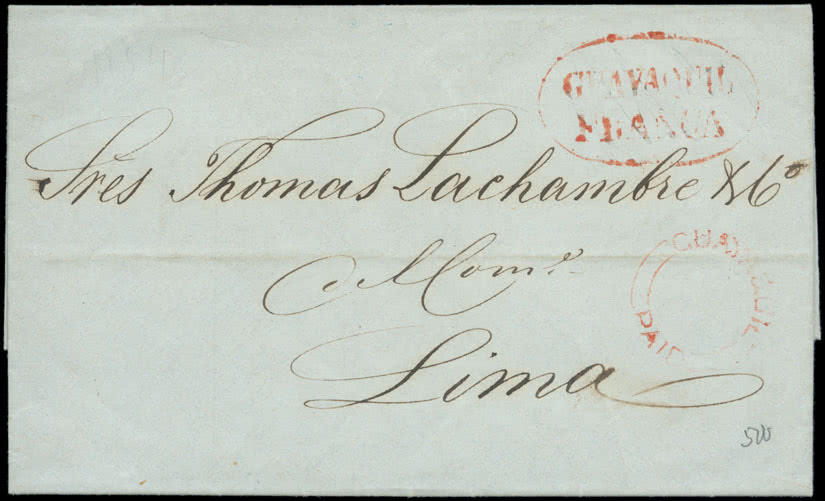 GUAYAQUIL
FRANCA
Sres Thomas Lachambre & Co
Lima
GUAYAQUIL
PAID
500